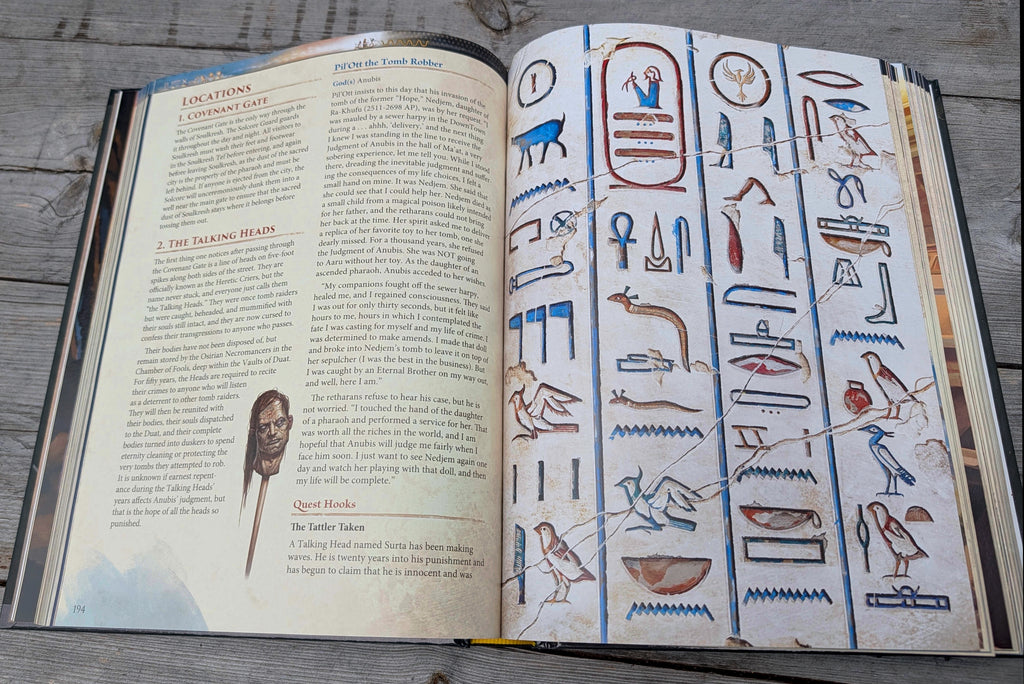 LOCATIONS
1. COVENANT GATE
The Covenant Gate is the only way through the
walls of Soulkresh. The Solcore Guard guards
it throughout the day and night. All visitors to
Soulkresh must wash their feet and footwear
in the Soulkresh Tef before entering, and again
before leaving Soulkresh, as the dust of the sacred
city is the property of the pharaoh and must be
left behind. If anyone is ejected from the city, the
Solcore will ceremoniously dunk them into a
well near the main gate to ensure that the sacred
dust of Soulkresh stays where it belongs before
tossing them out.
2. THE TALKING HEADS
The first thing one notices after passing through
the Covenant Gate is a line of heads on five-foot
spikes along both sides of the street. They are
officially known as the Heretic Criers, but the
name never stuck, and everyone just calls them
"the Talking Heads." They were once tomb raiders
but were caught, beheaded, and mummified with
their souls still intact, and they are now cursed to
confess their transgressions to anyone who passes.
Their bodies have not been disposed of, but
remain stored by the Osirian Necromancers in the
Chamber of Fools, deep within the Vaults of Duat.
For fifty years, the Heads are required to recite
their crimes to anyone who will listen
as a deterrent to other tomb raiders.
They will then be reunited with
their bodies, their souls dispatched
to the Duat, and their complete
bodies turned into duskers to spend
eternity cleaning or protecting the
very tombs they attempted to rob.
It is unknown if earnest repent-
ance during the Talking Heads'
years affects Anubis' judgment, but
that is the hope of all the heads so
punished.
194
Pil'Ott the Tomb Robber
God(s) Anubis
Pil'Ott insists to this day that his invasion of the
tomb of the former "Hope," Nedjem, daughter of
Ra-Khufu (2511-2698 AP), was by her request. "I
was mauled by a sewer harpy in the DownTown
during a . . . ahhh, 'delivery,' and the next thing
I knew I was standing in the line to receive the
Judgment of Anubis in the hall of Ma'at, a very
sobering experience, let me tell you. While I stood
there, dreading the inevitable judgment and suffer-
ing the consequences of my life choices, I felt a
small hand on mine. It was Nedjem. She said that
she could see that I could help her. Nedjem died as
a small child from a magical poison likely intended
for her father, and the retharans could not bring
her back at the time. Her spirit asked me to deliver
a replica of her favorite toy to her tomb, one she
dearly missed. For a thousand years, she refused
the Judgment of Anubis. She was NOT going
to Aaru without her toy. As the daughter of an
ascended pharaoh, Anubis acceded to her wishes.
"My companions fought off the sewer harpy,
healed me, and I regained consciousness. They said
I was out for only thirty seconds, but it felt like
hours to me, hours in which I contemplated the
fate I was casting for myself and my life of crime. I
was determined to make amends. I made that doll
and broke into Nedjem's tomb to leave it on top of
her sepulcher (I was the best in the business). But
I was caught by an Eternal Brother on my way out,
and well, here I am."
The retharans refuse to hear his case, but he is
not worried. "I touched the hand of the daughter
of a pharaoh and performed a service for her. That
was worth all the riches in the world, and I am
hopeful that Anubis will judge me fairly when I
face him soon. I just want to see Nedjem again one
day and watch her playing with that doll, and then
my life will be complete."
Quest Hooks
The Tattler Taken
A Talking Head named Surta has been making
waves. He is twenty years into his punishment and
has begun to claim that he is innocent and was